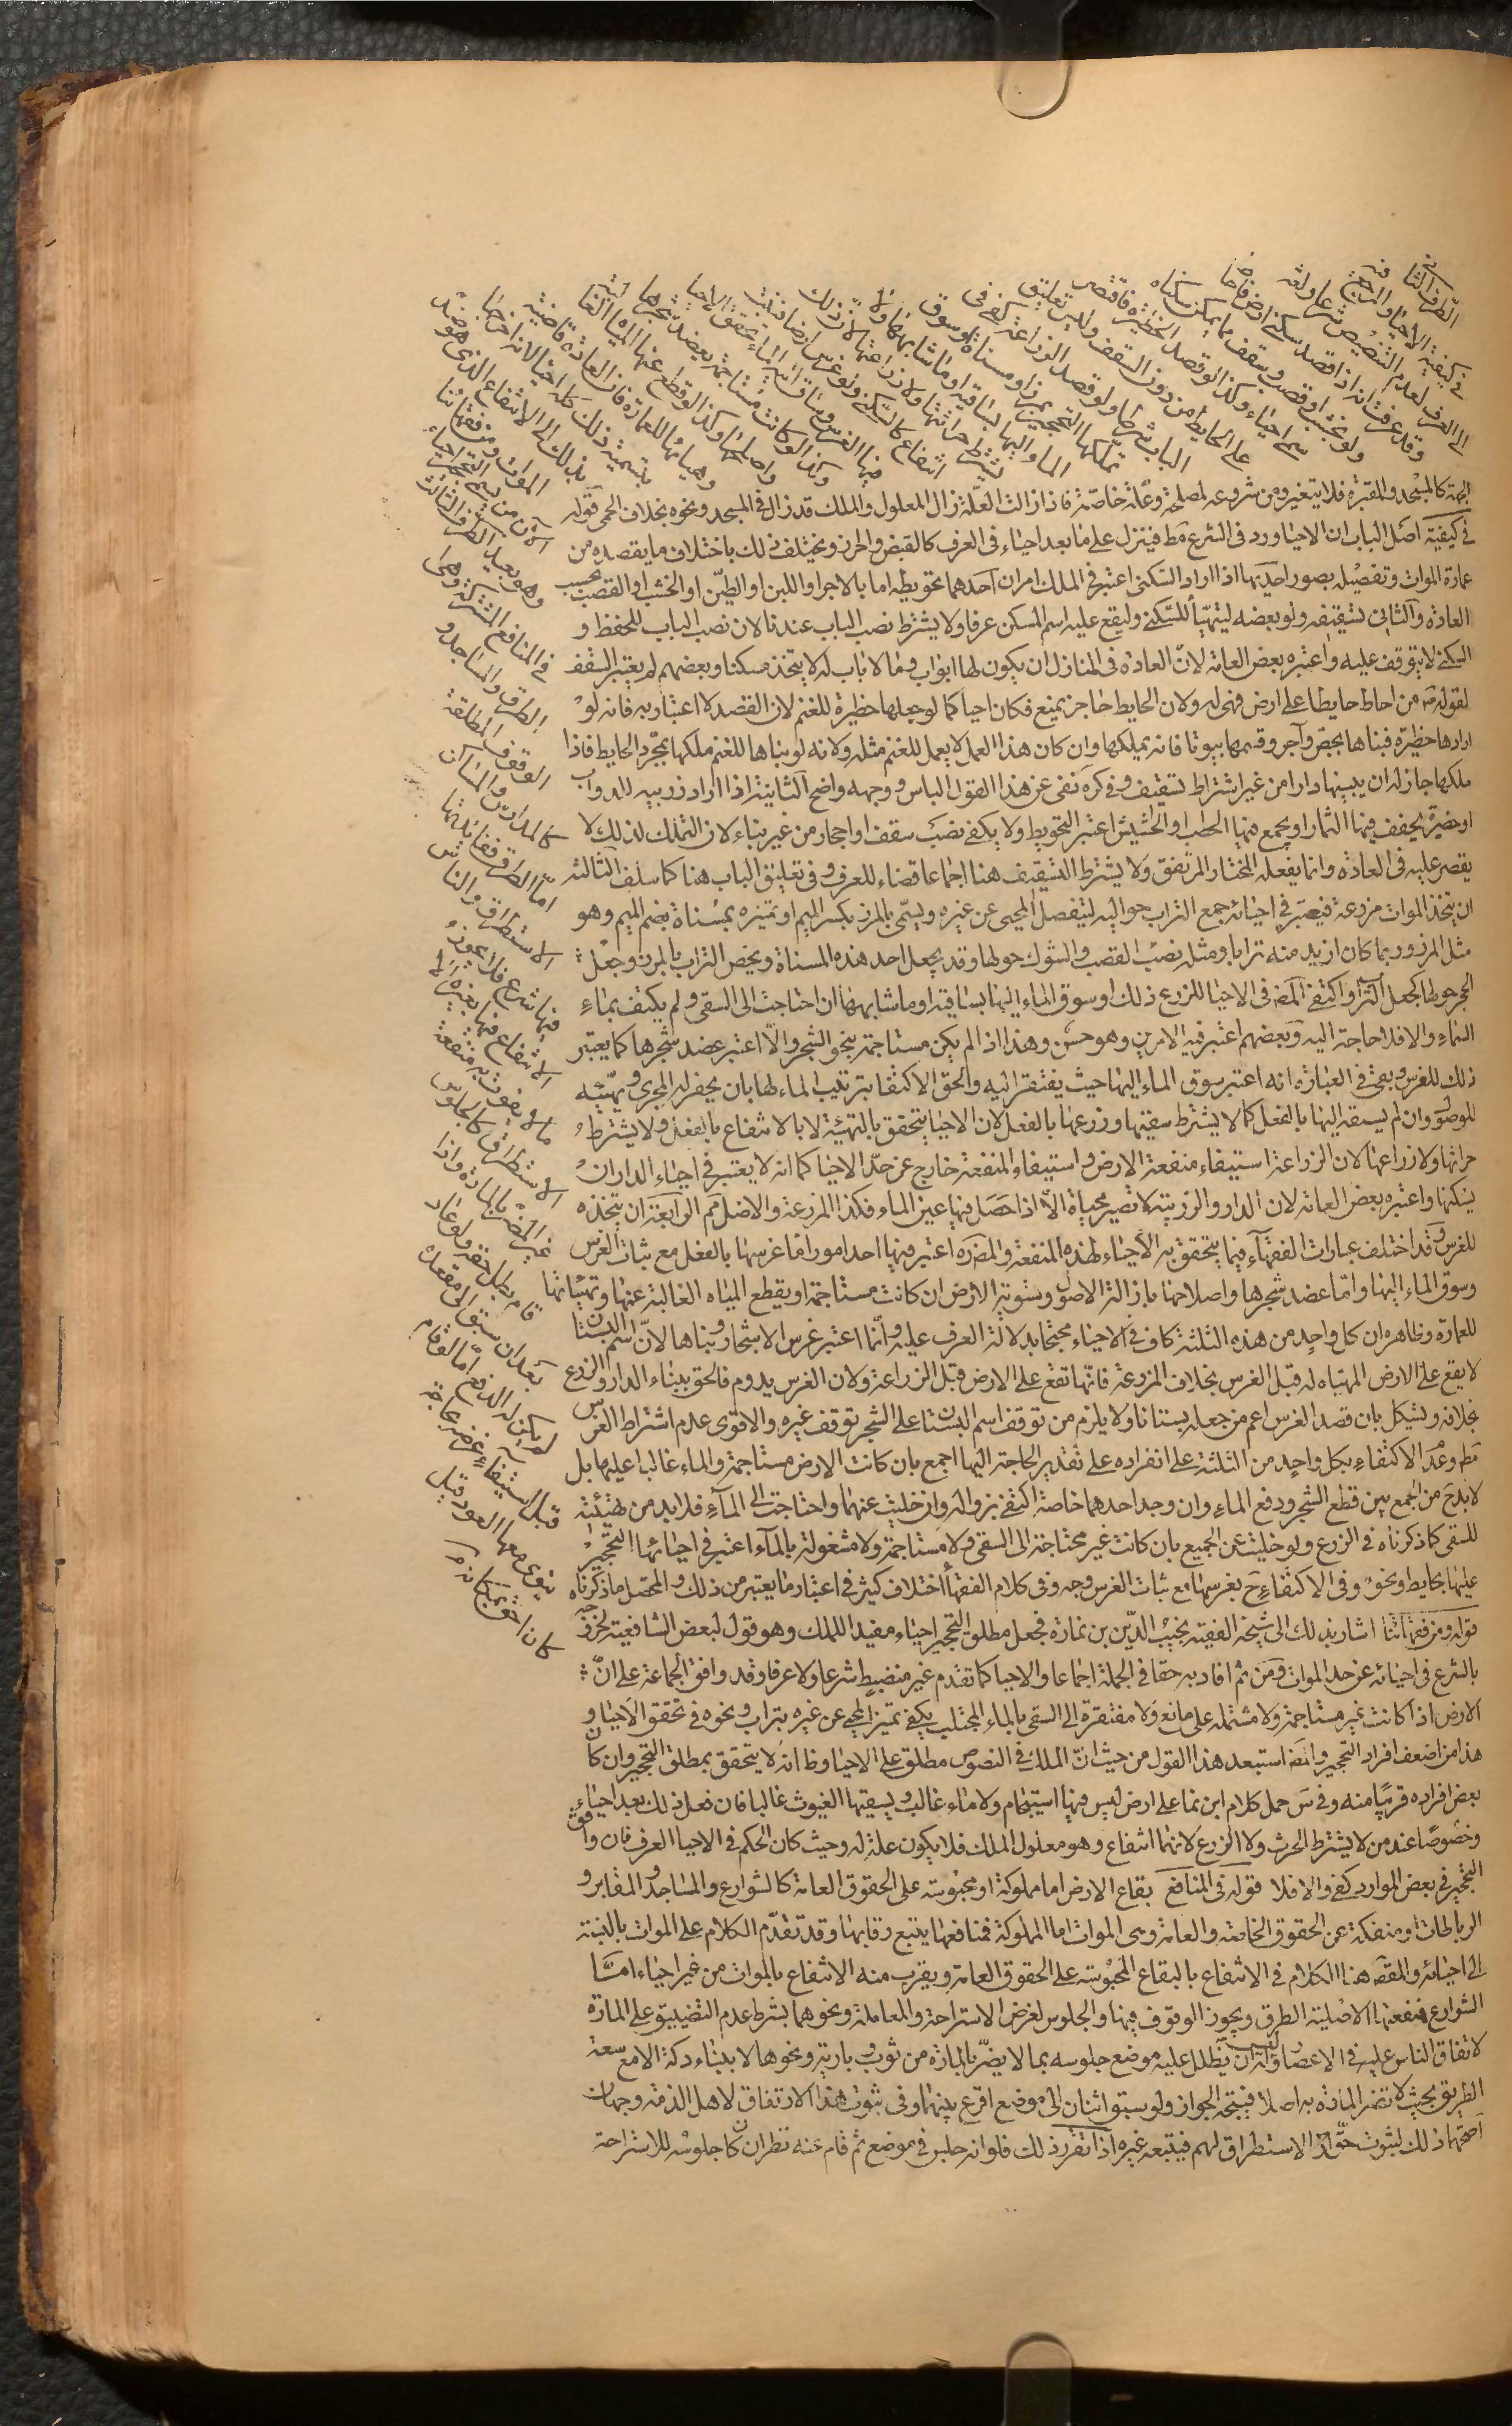 الطرف الثانى
فى كيفية الاحياء والمرجع فيه
الى العرف لعدم التنصيص شرعا ولغة
وقد عرف انه اذا قصد سكنى ارض فاحاط
ولو بخشب او قصب وسقف مما يمكن سكناه
سمى احياء وكذا لو قصد الحظيرة فاقتصر
على الحايط من دون السقف وليس تعليق
الباب شرطا ولو قصد الزراعة كفى فى
تملكها التحجير بمرز او مسناة وسوق
الماء اليها بساقية او ما شابهها ولا
يشترط حراثتها ولا زراعتها لان ذلك
انتفاع كالسكنى ولو غرس ارضا فنبت
فيها الغرس وساق اليها الماء تحقق الاحياء
وكذا لو كانت مستاجمة فعضد شجرها
واصلحها وكذا لو قطع عنها المياه الغالبة
وهياها للعمارة فان العادة قاضية
بتسمية ذلك كله احياء لانه اخرجها
بذلك الى الانتفاع الذى هو ضد
الموات ومن فقهائنا
الآن من يسمى التحجير احياء
وهو بعيد الطرف الثالث
فى المنافع المشتركة وهى
الطرق والمساجد و
الوقوف المطلقة
كالمدارس والمساكن
اما الطرق ففائدتها
الاستطراق والناس
فيها شرع فلا يجوز
الانتفاع فيها بغيره الا
ما لا يفوت به منفعة
الاستطراق كالجلوس
غير المضر بالمارة واذا
قام بطل حقه ولو عاد
بعد ان سبق الى مقعده
لم يكن له الدفع اما لو قام
قبل استيفاء غرضه لحاجة
ينوى معها العود قيل
كان احق بمكانه
الجهة كالمسجد والمقبرة فلا يتغير ومن شروعه لمصلحة وعلة خاصة فاذا زالت العلة زال المعلول والملك قد زال فى المسجد ونحوه بخلاف الحمى قوله
فى كيفية اصل الباب ان الاحياء ورد فى الشرع مطلقا فينزل على ما يعد احياء فى العرف كالقبض والحرز ويختلف ذلك باختلاف ما يقصد من
عمارة الموات وتفصيله بصور احديها اذا اراد السكنى اعتبر فى الملك امران احدهما تحويطه اما بالاجر او اللبن او الطين او الخشب او القصب بحسب
العادة والثانى تسقيفه ولو بعضه ليتهيأ للسكنى وليقع عليه اسم المسكن عرفا ولا يشترط نصب الباب عندنا لان نصب الباب للحفظ و
السكنى لا يتوقف عليه واعتبره بعض العامة لان العادة فى المنازل ان يكون لها ابواب وما لا باب له لا يتخذ مسكنا وبعضهم لم يعتبر السقف
لقوله ص من احاط حايطا على ارض فهى له ولان الحايط حاجز يمنع فكان احيا كما لو جعلها حظيرة للغنم لان القصد لا اعتبار به فانه لو
ارادها حظيرة فبناها بجص وآجر وقسمها بيوتا فانه يملكها وان كان هذا العمل لا يعمل للغنم مثله ولانه لو بناها للغنم ملكها بمجرد الحايط فاذا
ملكها جاز له ان يبنيها دارا من غير اشتراط تسقيف وفى كره نفى عن هذا القول الباس ووجهه واضح الثانية اذا اراد زريبة للدواب
او حظيرة يجفف فيها الثمار او يجمع فيها الحطب او الحشيش اعتبر التحويط ولا يكفى نصب سقف او احجار من غير بناء لان التملك لذلك لا
يقصر عليه فى العادة وانما يفعله المختار المرتفق ولا يشترط التسقيف هنا اجماعا قضاء للعرف وفى تعليق الباب هنا كما سلف الثالثة
ان يتخذ الموات مزرعة فيعتبر فى احيائه جمع التراب حواليه لينفصل المحيى عن غيره ويسمى بالمرز بكسر الميم او تميزه بمسناة بضم الميم وهو
مثل المرز وربما كان ازيد منه ترابا ومثله نصب القصب والشوك حولها وقد يجعل احد هذه المسناة ويخص التراب بالمرز وجعل
الحجر حولها كجعل التراب واكتفى المصنف فى الاحيا للزرع ذلك او سوق الماء اليها بساقية او ما شابهها ان احتاجت الى السقى ولم يكتف بماء
السماء والا فلا حاجة اليه وبعضهم اعتبر فيه الامرين وهو حسن وهذا اذا لم يكن مستاجمة بنحو الشجر والا اعتبر عضد شجرها كما يعتبر
ذلك للغرس وبقى فى العبارة انه اعتبر سوق الماء اليها حيث يفتقر اليه والحق الاكتفا بترتيب الماء لها بان يحفر له المجرى ويهيئه
للوصول وان لم يسقه اليها بالفعل كما لا يشترط سقيها وزرعها بالفعل لان الاحيا يتحقق بالتهيئة لا بالانتفاع بالفعل ولا يشترط
حراثها ولا زراعها لان الزراعة استيفاء منفعة الارض واستيفاء المنفعة خارج عن حد الاحيا كما انه لا يعتبر فى احياء الدار ان
يسكنها واعتبره بعض العامة لان الدار والزريبة لا تصير محياة الا اذا حصل فيها عين المال فكذا المزرعة والاصل مم الرابعة ان يتخذه
للغرس وقد اختلف عبارات الفقهاء فيما يتحقق به الاحياء لهذه المنفعة والمصنف اعتبر فيها احد امور اما غرسها بالفعل مع ثبات الغرس
وسوق الماء اليها واما عضد شجرها واصلاحها بازالة الاصول وتسوية الارض ان كانت مستاجمة او يقطع المياه الغالبة عنها وتهيئتها
للعمارة وظاهره ان كل واحد من هذه الثلثة كاف فى الاحياء محتجا بدلالة العرف عليه وانما اعتبر غرس الاشجار وبناها لان اسم البستان
لا يقع على الارض المهياه له قبل الغرس بخلاف المزرعة فانها تقع على الارض قبل الزراعة ولان الغرس يدوم فالحق ببناء الدار والزرع
بخلافه ويشكل بان قصد الغرس اعم من جعله بستانا ولا يلزم من توقف اسم البستان على الشجر توقف غيره والاقوى عدم اشتراط الغرس
مط وعدم الاكتفاء بكل واحد من الثلثة على انفراده على تقدير الحاجة اليها اجمع بان كانت الارض مستاجمة والماء غالبا عليها بل
لا بد ح من الجمع بين قطع الشجر ودفع الماء وان وجد احدهما خاصة اكتفى بزواله وان خليت عنهما واحتاجت الى الماء فلا بد من تهيئته
للسقى كما ذكرناه فى الزرع ولو خليت عن الجميع بان كانت غير محتاجة الى السقى ولا مستاجمة ولا مشغولة بالماء اعتبر فى احيائها التحجير
عليها بحايط ونحوه وفى الاكتفاء ح بغرسها مع ثبات الغرس وجه وفى كلام الفقهاء اختلاف كثير فى اعتبار ما يعتبر من ذلك والمحصل ما ذكرناه
قوله ومن فقهائنا اشار بذلك الى شيخه الفقيه نجيب الدين بن نما ره فجعل مطلق التحجير احياء مفيدا للملك وهو قول لبعض الشافعية لخروجه
بالشرع فى احيائه عن حد الموات ومن ثم افاد به حقا فى الجملة اجماعا والاحيا كما تقدم غير منضبط شرعا ولا عرفا وقد وافق الجماعة على ان
الارض اذا كانت غير مستاجمة ولا مشتملة على مانع ولا مفتقرة الى السقى بالماء المجتلب يكفى تميز المحيى عن غيره بتراب ونحوه فى تحقق الاحيا و
هذا من اضعف افراد التحجير والمصنف استبعد هذا القول من حيث ان الملك فى النصوص مطلق على الاحيا وظ انه لا يتحقق بمطلق التحجير وان كان
بعض افراده قريبا منه وفى س حمل كلام ابن نما على ارض ليس فيها استيجام ولا ماء غالب ويسقيها الغيوث غالبا فان فعل ذلك يعد احياء
وخصوصا عند من لا يشترط الحرث ولا الزرع لانهما انتفاع وهو معلول الملك فلا يكون علة له وحيث كان الحكم فى الاحيا العرف فان وافق
التحجير فى بعض الموارد كفى والا فلا قوله فى المنافع بقاع الارض اما مملوكة او محبوسة على الحقوق العامة كالشوارع والمساجد والمقابر و
الرباطات او منفكة عن الحقوق الخاصة والعامة وهى الموات اما المملوكة فمنافعها يتبع رقابها وقد تقدم الكلام على الموات بالنسبة
الى احيائه والمقصود هنا الكلام فى الانتفاع بالبقاع المحبوسة على الحقوق العامة ويقرب منه الانتفاع بالموات من غير احياء اما
الشوارع فمنفعتها الاصلية الطرق ويجوز الوقوف فيها والجلوس لغرض الاستراحة والمعاملة ونحوهما بشرط عدم التضييق على المارة
لاتفاق الناس عليه فى الاعصار وله ان يظلل عليه موضع جلوسه بما لا يضر بالمارة من ثوب وبارية ونحوها لا ببناء دكة الا مع سعة
الطريق بحيث لا تضر المارة به اصلا فيتجه الجواز ولو سبق اثنان الى موضع اقرع بينهما وفى ثبوت هذا الارتفاق لاهل الذمة وجهان
اصحهما ذلك لثبوت حق الاستطراق لهم فيتبعه غيره اذا تقرر ذلك فلو انه جلس فى موضع ثم قام عنه نظر ان كان جلوسه للاستراحة